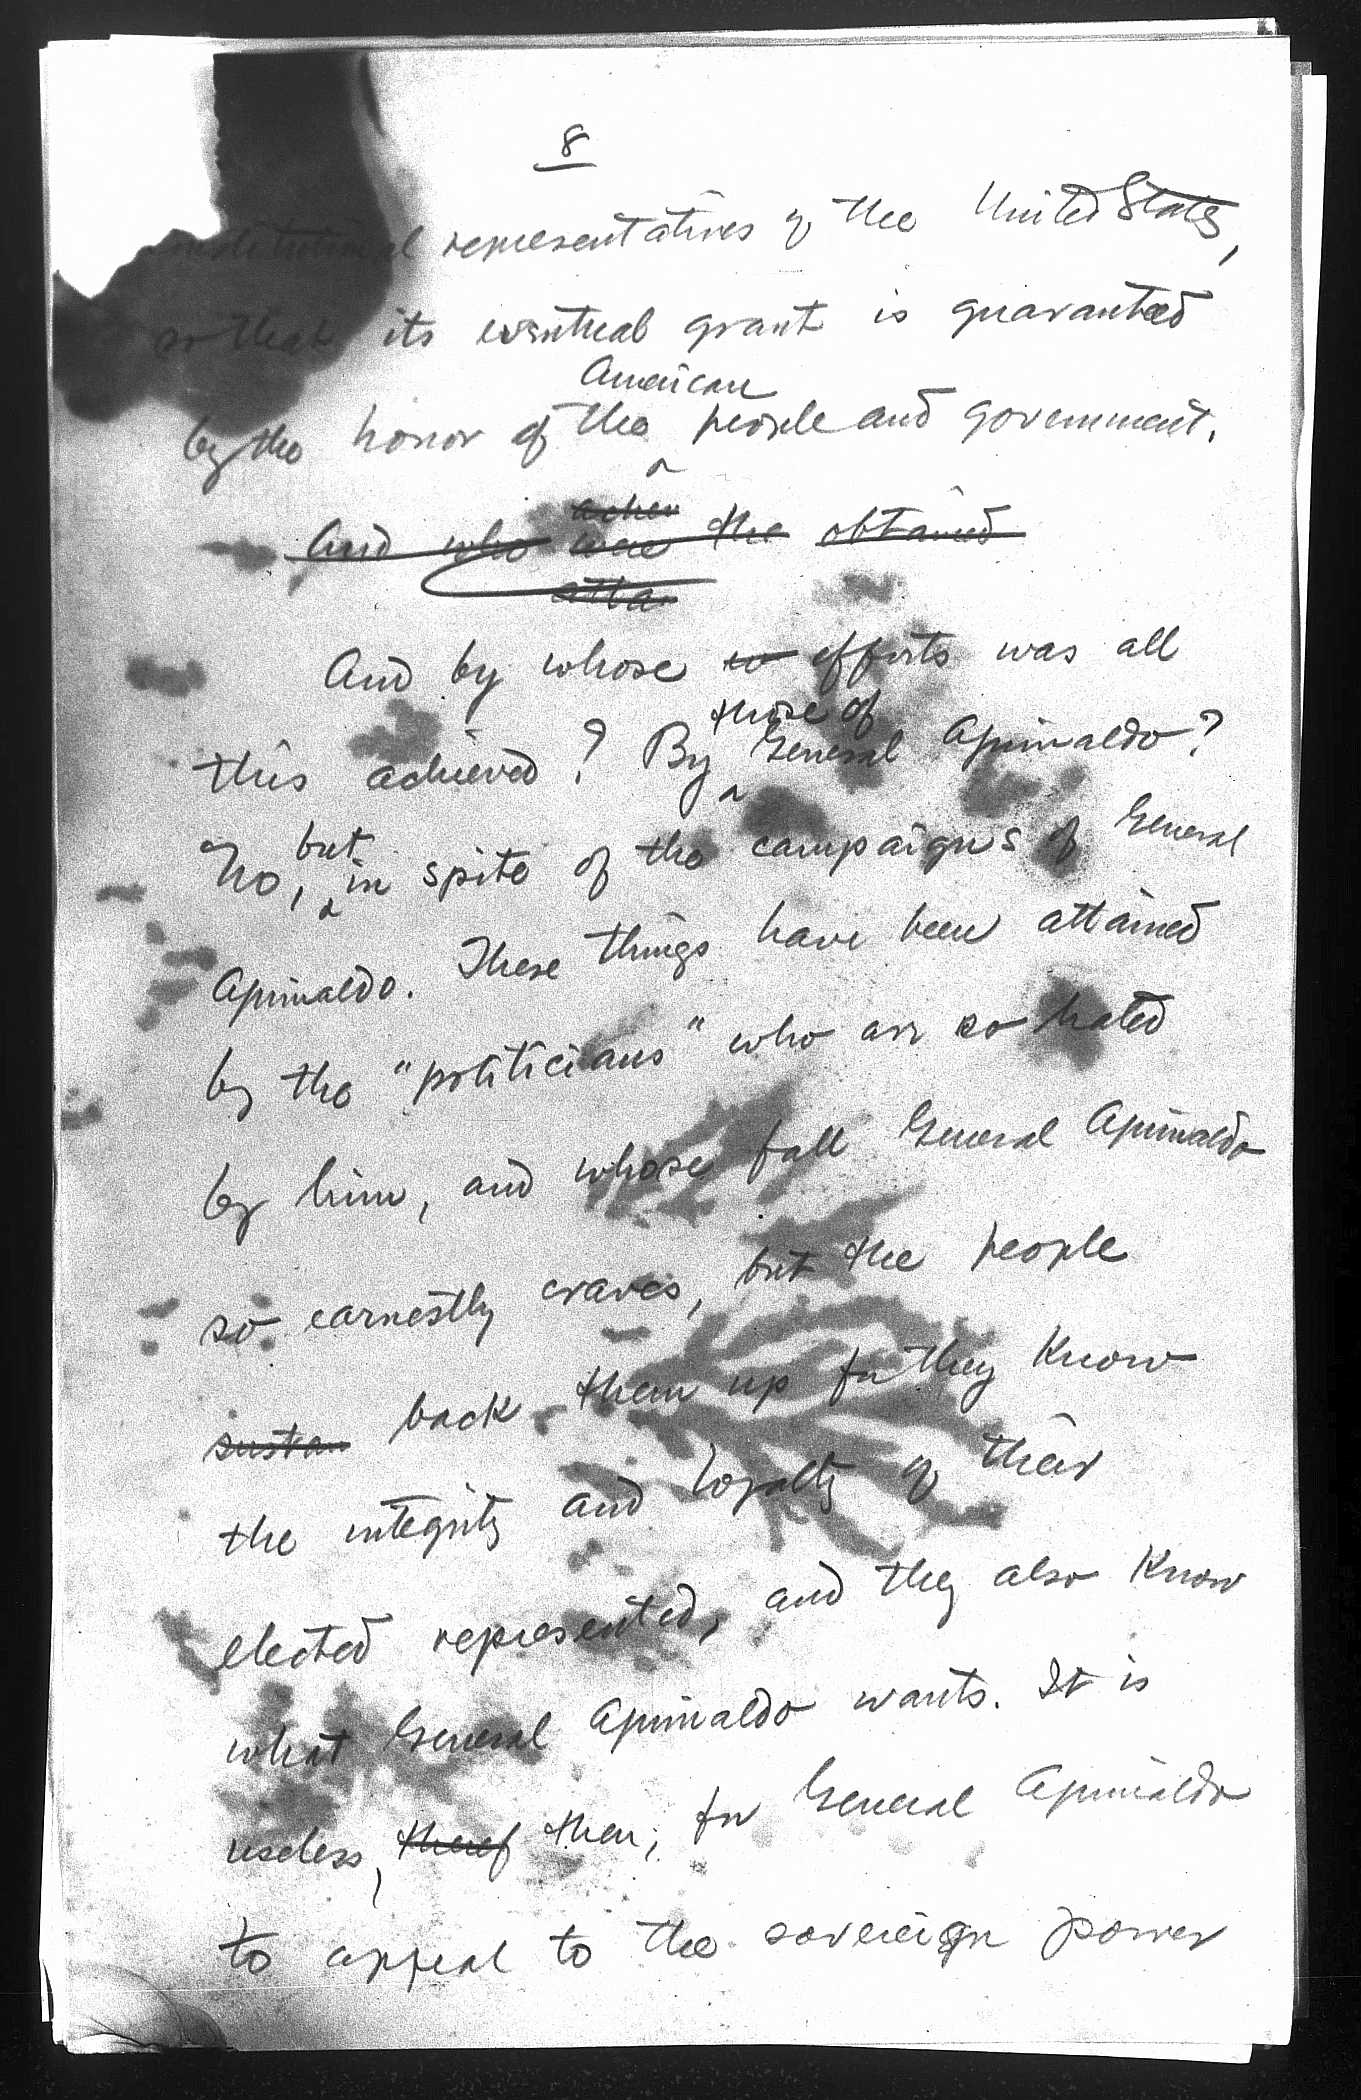 8
constitutional representatives of the United States,
so that its eventual grant is guaranteed
American
by the honor of the people and government.
And who was the obtained
And by whose efforts was all
those of
this achieved? By General Aguinaldo?
but
No, in spite of the campaigns of General
Aguinaldo. These things have been attained
by the "politicians" who are so hated
by him, and whose fall General Aguinaldo
so earnestly craves, but the people
sustai back them up for they know
the integrity and loyalty of their
elected represented, and they also know
what General Aguinaldo wants. It is
useless, theref then, for General Aguinaldo
to appeal to the sovereign power